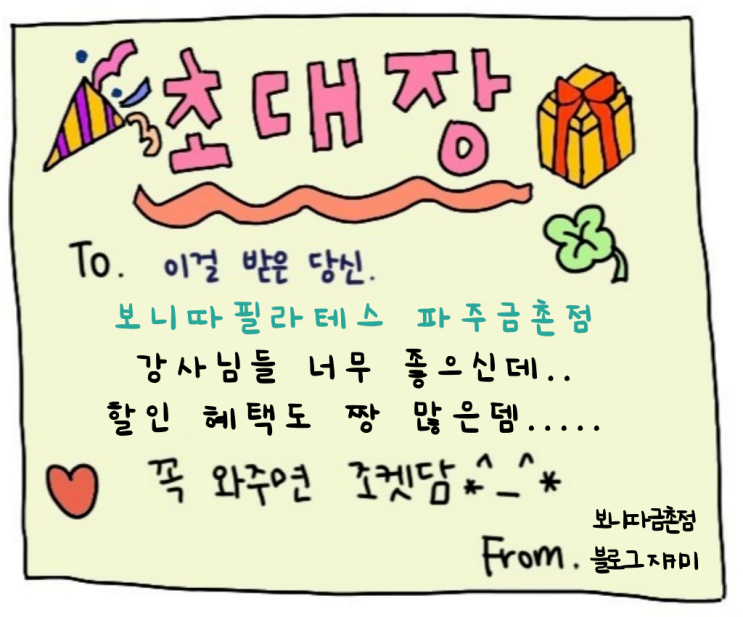 초대장
To. 이걸 받은 당신.
보니따필라테스 파주금촌점
강사님들 너무 좋으신데..
할인 혜택도 짱 많은뎀.....
꼭 와주면 조켓담*^_^*
보니따금촌점
From. 블로그쟈키미